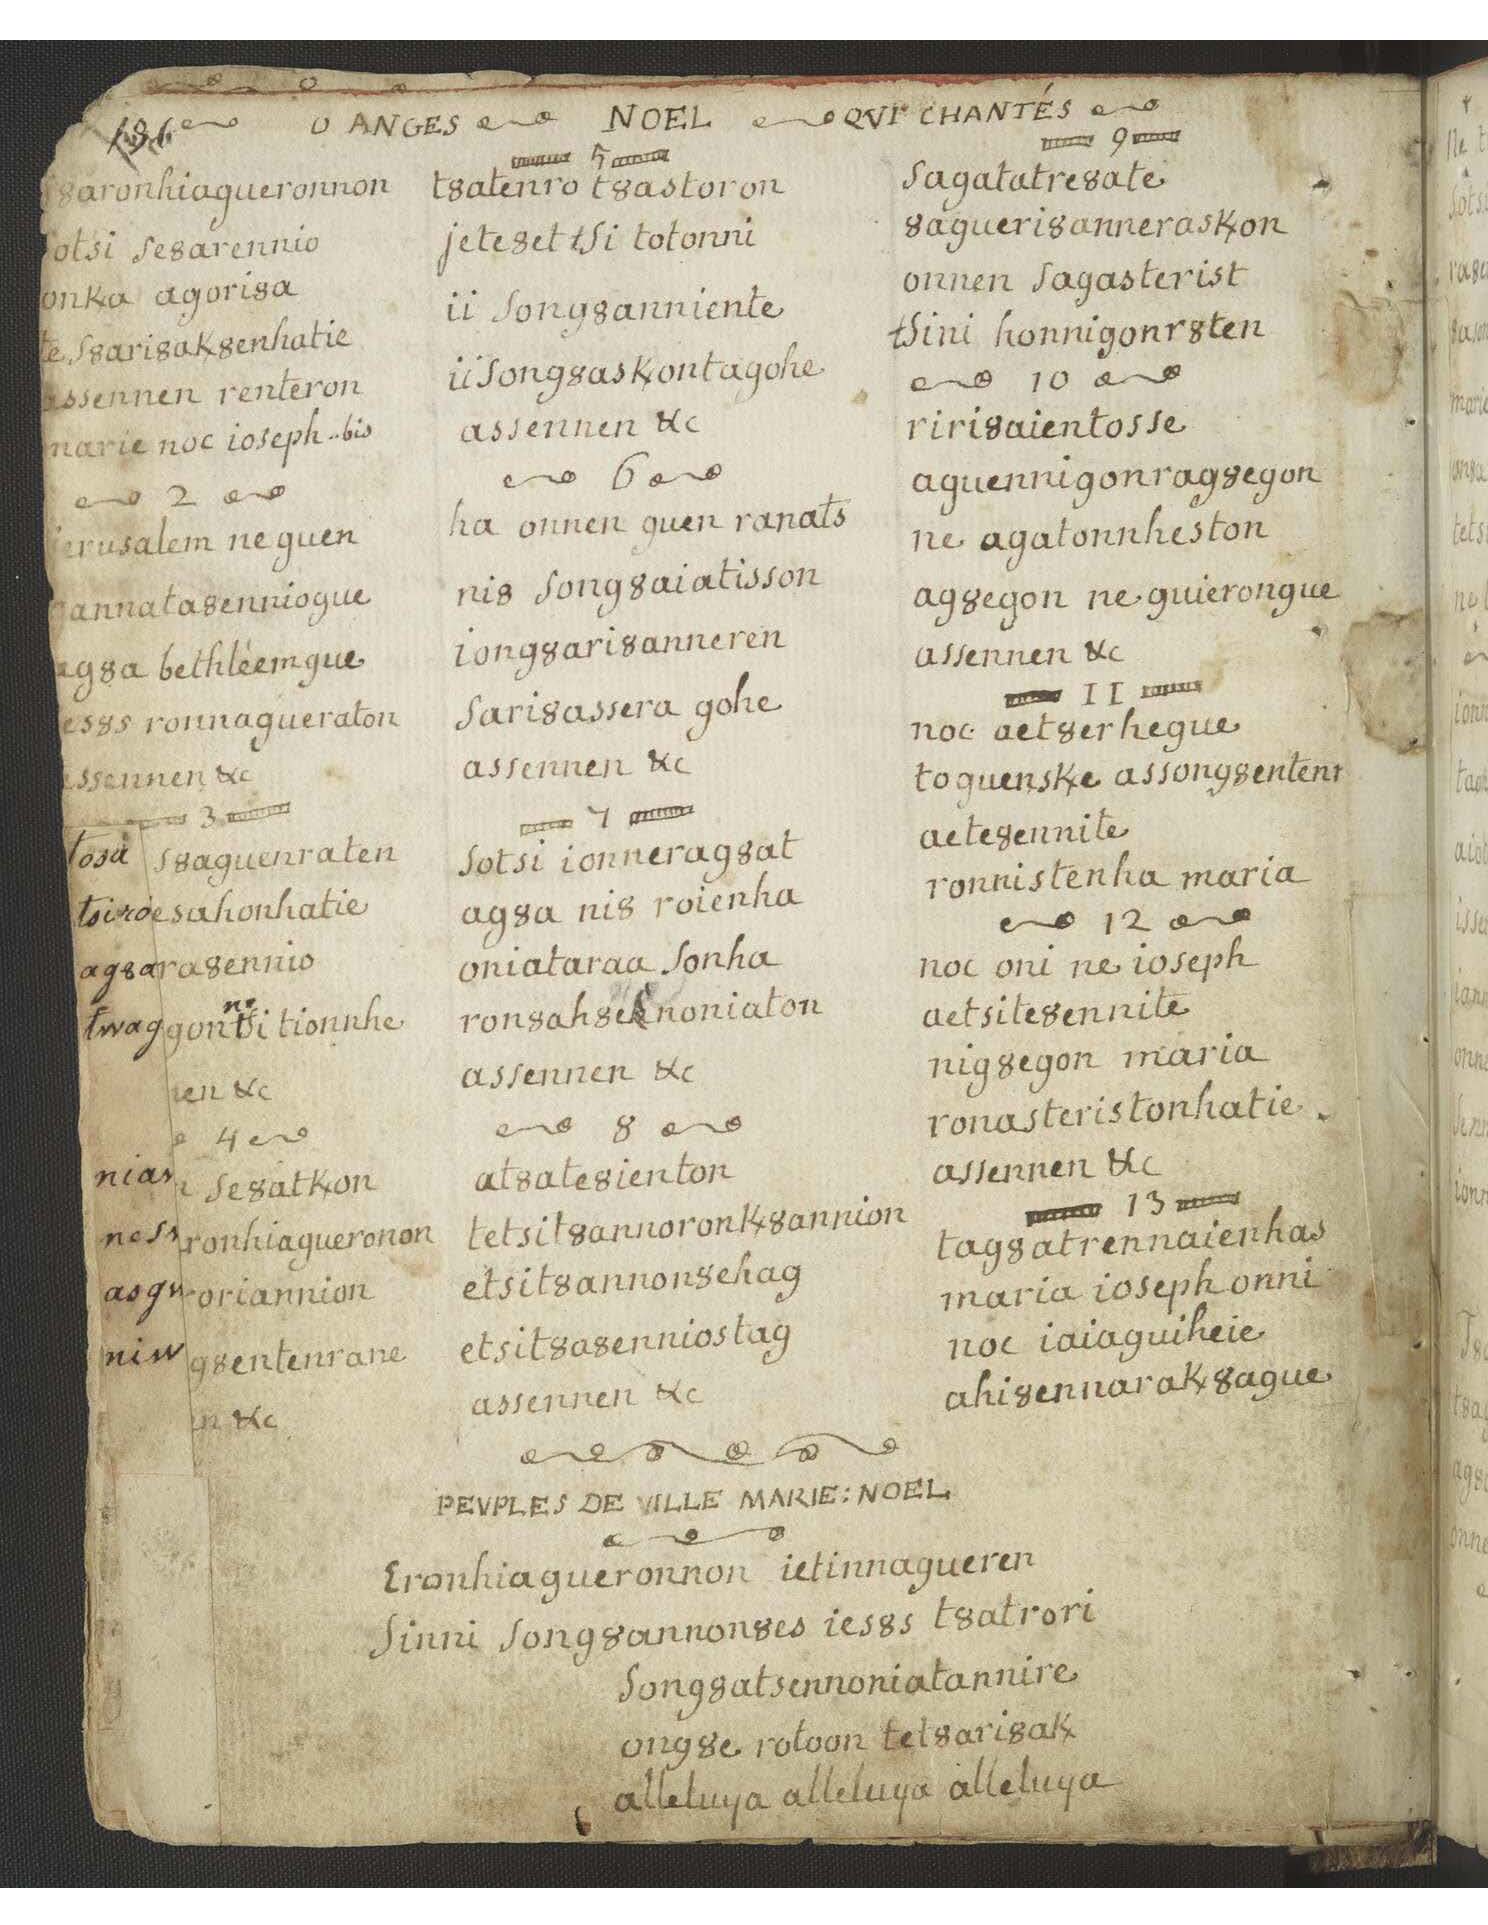 186
O ANGES NOEL QVI CHANTÉS
saronhiagueronnon
sotsi se8arennio
onka agori8a
te s8ari8ak8enhatie
assennen renteron
marie noc ioseph..bis
2
ierusalem ne guen
gannata8enniogue
ag8a bethléemgue
ies8s ronnagueraton
assennen &c
3
tosa s8aguenraten
tsiroesahonhatie
ag8ara8ennio
twaggon ne tsi tionnhe
nen &c
4
nian se8atkon
ness ronhiagueronon
asgw roriannion
niw g8entenrane
n &c
5
t8atenro t8astoron
jete8et tsi totonni
ii song8anniente
ii song8askontagohe
assennen &c
6
ha onnen guen ranats
ni8 song8aiatisson
iong8ari8anneren
sari8assera gohe
assennen &c
7
sotsi ionnerag8at
ag8a ni8 roienha
oniataraa sonha
ron8ah8esnoniaton
assennen &c
8
at8ate8ienton
tetsit8annoronk8annion
etsit8annon8ehag
etsit8a8enniostag
assennen &c
9
sagatatre8ate
8agueri8anneraskon
onnen sagasterist
tsini honnigonr8ten
10
riri8aientosse
aguennigonrag8egon
ne agatonnheston
ag8egon ne guierongue
assennen &c
11
noc aet8erhegue
toguenske assong8entenr
aete8ennite
ronnistenha maria
12
noc oni ne ioseph
aetsite8ennite
nig8egon maria
ronasteristonhatie.
assennen &c
13
tag8atrennaienhas
maria ioseph onni
noc iaiaguiheie
ahi8ennarak8ague
PEVPLES DE VILLE MARIE: NOEL
Eronhiagueronnon ietinnagueren
sinni song8annon8es ies8s t8atrori
song8atsennoniatannire
ong8e rotoon tet8ari8ak
alleluya alleluya alleluya